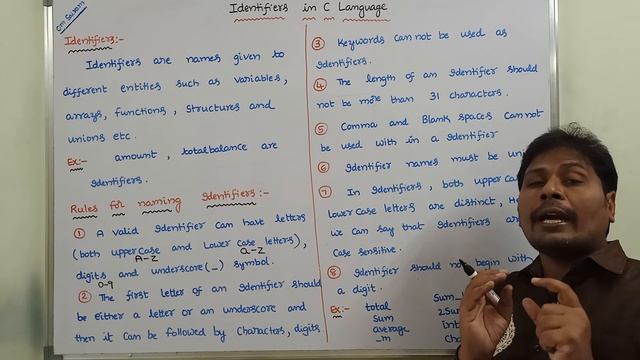 Om Sairam
Identifiers in C Language
Identifiers:-
Identifiers are names given to
different entities such as variables,
arrays, functions, structures and
unions etc.
Ex:- amount, totalbalance are
identifiers.
Rules for naming Identifiers:-
① A valid identifier can have letters
(both uppercase and Lowercase letters),
A-Z a-z
digits and underscore(_) symbol.
0-9
② The first letter of an identifier should
be either a letter or an underscore and
then it can be followed by characters, digits
③ Keywords cannot be used as
identifiers.
④ The length of an identifier should
not be more than 31 characters.
⑤ Comma and Blank spaces cannot
be used with in a identifier
⑥ Identifier names must be
⑦ In identifiers, both upper
lower case letters are distinct,
we can say that identifiers
Case sensitive.
⑧ Identifier should not begin with
a digit.
Ex:- total
sum
average
_m